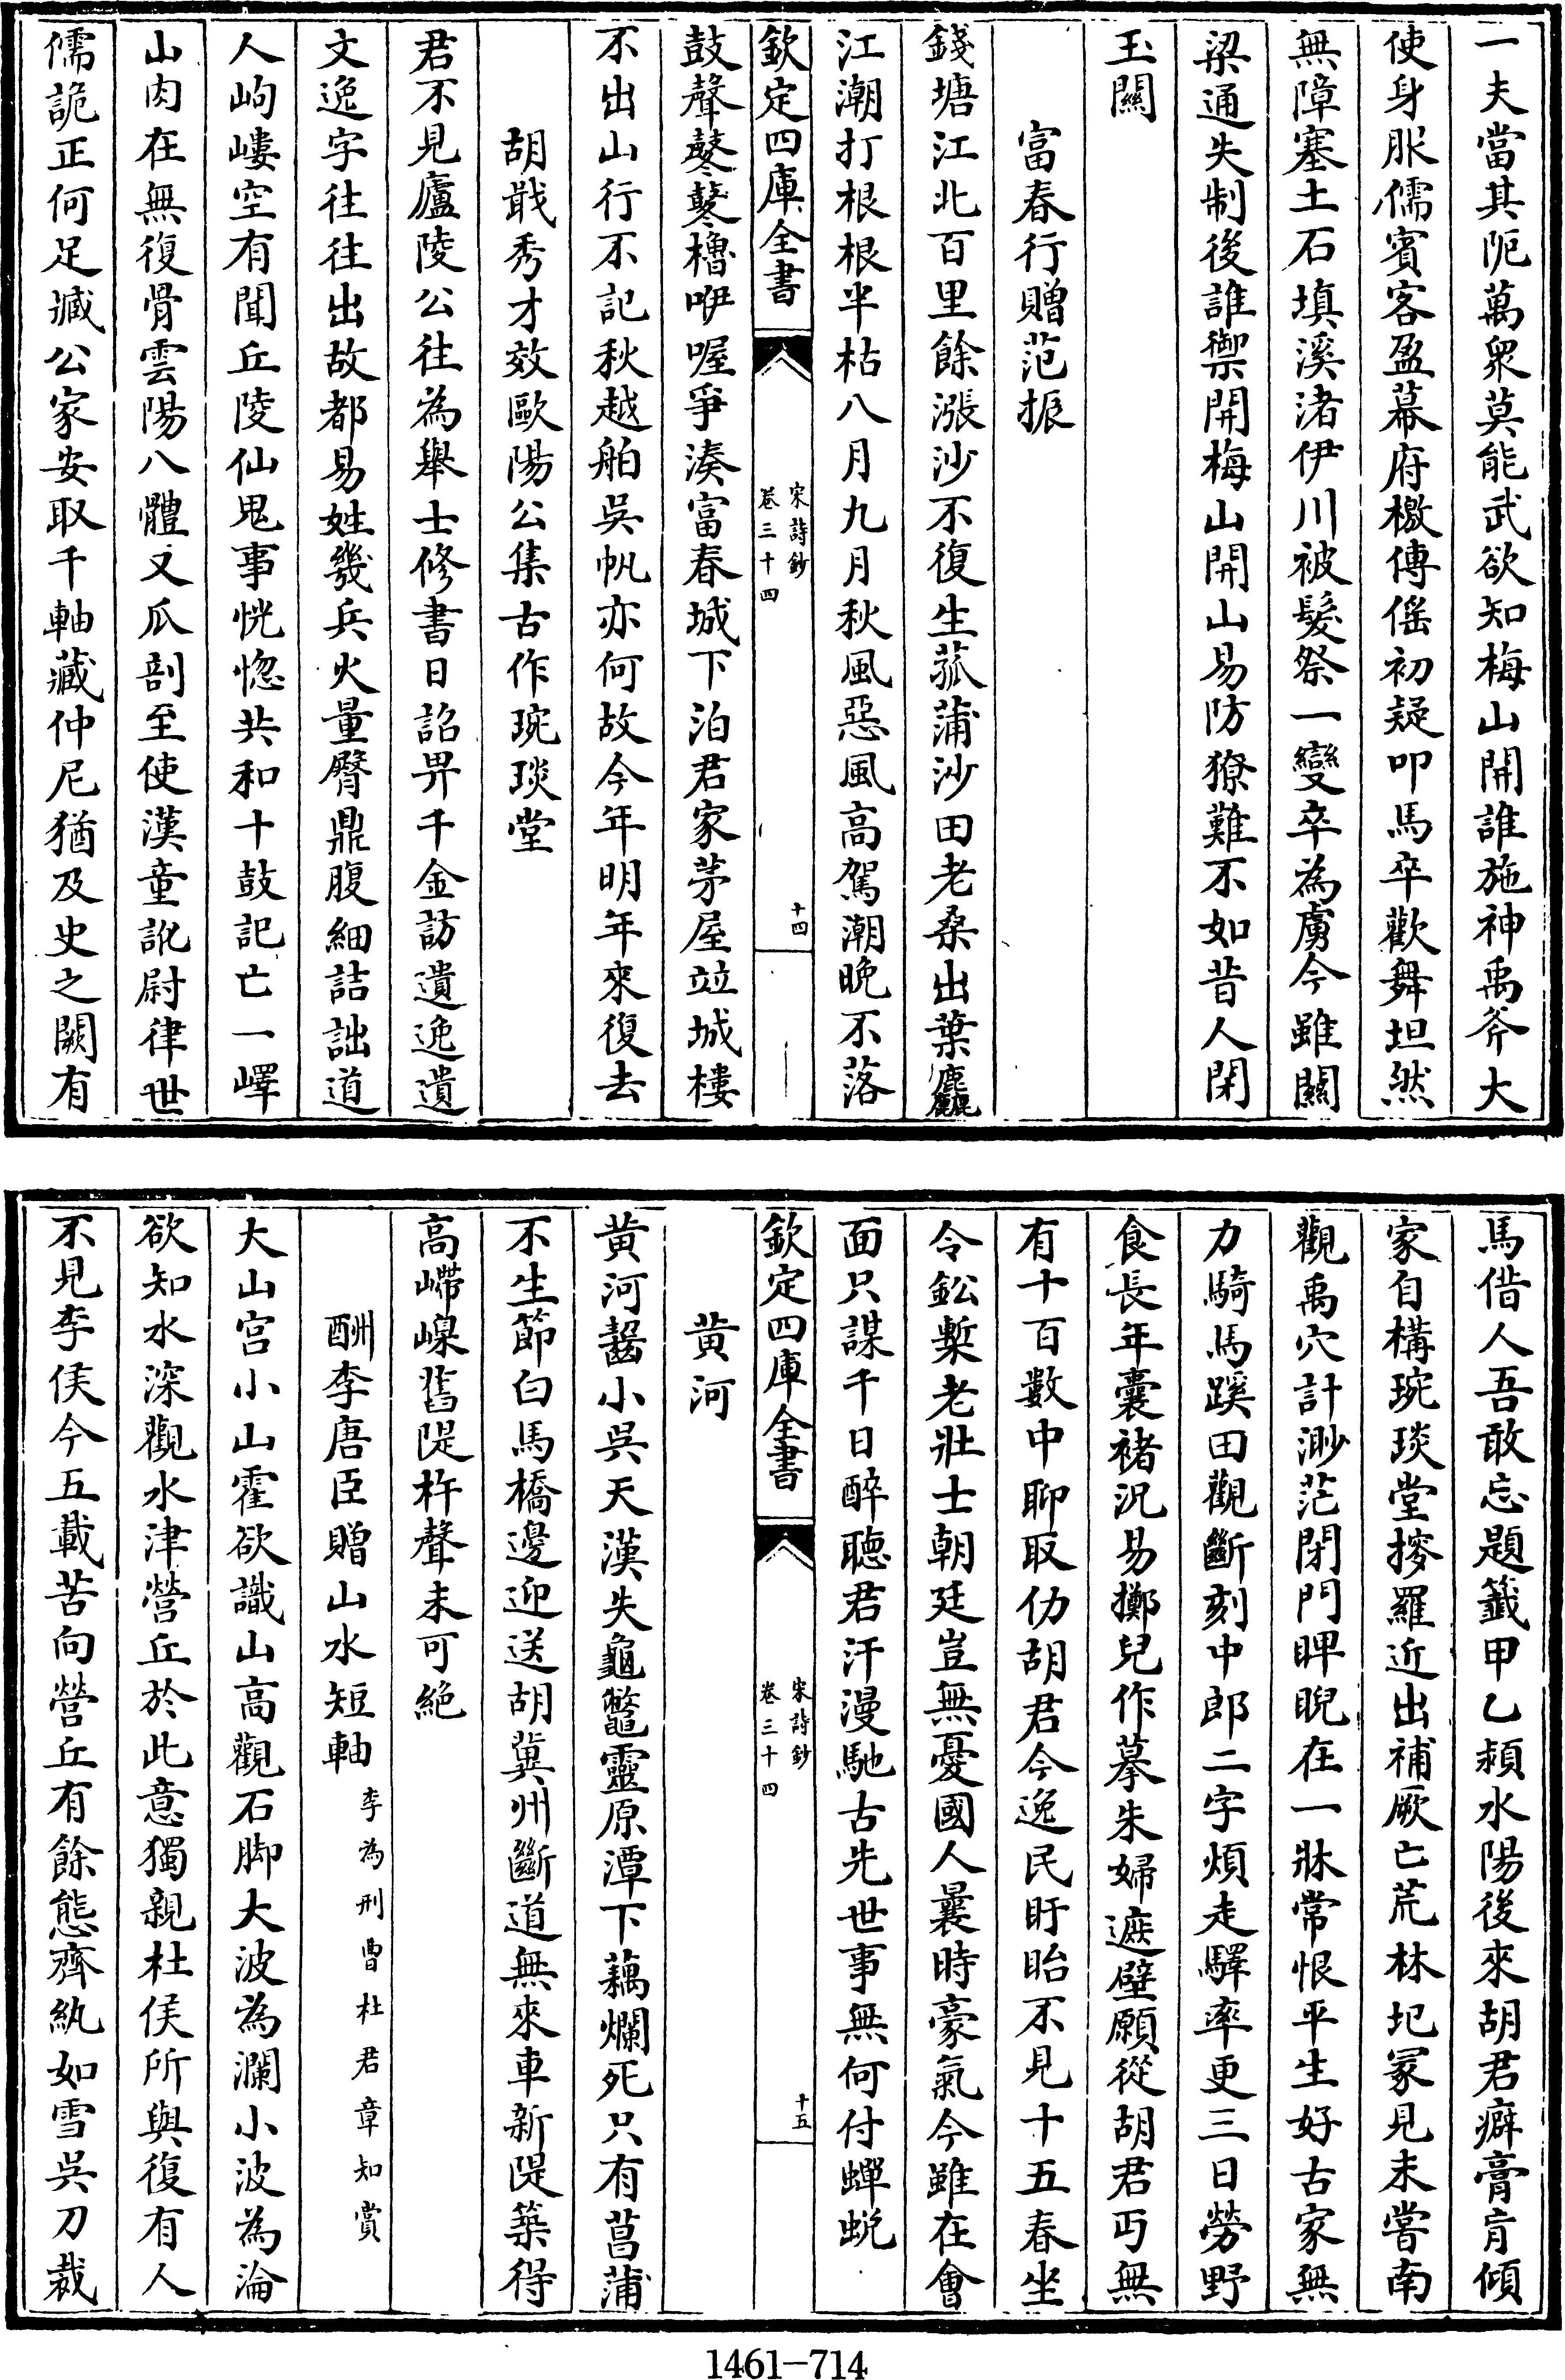 一夫當其阨萬衆莫能武欲知梅山開誰施神禹斧大
使身服儒賓客盈幕府檄傳傜初疑叩馬卒歡舞坦然
無障塞土石填溪渚伊川被髮祭一變卒為虜今雖關
梁通失制後誰禦開梅山開山易防獠難不如昔人閉
玉關
富春行贈范振
錢塘江北百里餘漲沙不復生菰蒲沙田老桑出葉麤
江潮打根根半枯八月九月秋風惡風高駕潮晚不落
欽定四庫全書
宋詩鈔
卷三十四
十四
鼓聲鼕鼕櫓咿喔爭湊富春城下泊君家茅屋竝城樓
不出山行不記秋越舶吳帆亦何故今年明年來復去
胡戢秀才效歐陽公集古作琬琰堂
君不見廬陵公往為舉士修書日詔畀千金訪遺逸遺
文逸字往往出故都易姓幾兵火量臀鼎腹細詰詘道
人岣嶁空有聞丘陵仙鬼事恍惚共和十鼓記亡一嶧
山肉在無復骨雲陽八體又瓜剖至使漢童訛尉律世
儒詭正何足臧公家安取千軸藏仲尼猶及史之闕有
馬借人吾敢忘題籤甲乙潁水陽後來胡君癖膏肓傾
家自構琬琰堂摉羅近出補厥亡荒林圮冢見未嘗南
觀禹穴計渺茫閉門睥睨在一牀常恨平生好古家無
力騎馬蹊田觀斷刻中郎二字煩走驛率更三日勞野
食長年囊褚況易擲兒作摹朱婦遮壁願從胡君丐無
有十百數中聊取仂胡君今逸民盱眙不見十五春坐
令鈆槧老壯士朝廷豈無憂國人曩時豪氣今雖在會
面只謀千日醉聽君汗漫馳古先世事無何付蟬蛻
欽定四庫全書
宋詩鈔
卷三十四
十五
黄河
黄河齧小吳天漢失龜鼈靈原潭下藕爛死只有菖蒲
不生節白馬橋邊迎送胡冀州斷道無來車新隄築得
高㟄嵲舊隄杵聲未可絶
酬李唐臣贈山水短軸
李為刑曹杜君章知賞
大山宫小山霍欲識山高觀石脚大波為瀾小波為淪
欲知水深觀水津營丘於此意獨親杜侯所與復有人
不見李侯今五載苦向營丘有餘態齊紈如雪吳刀裁
1461-714